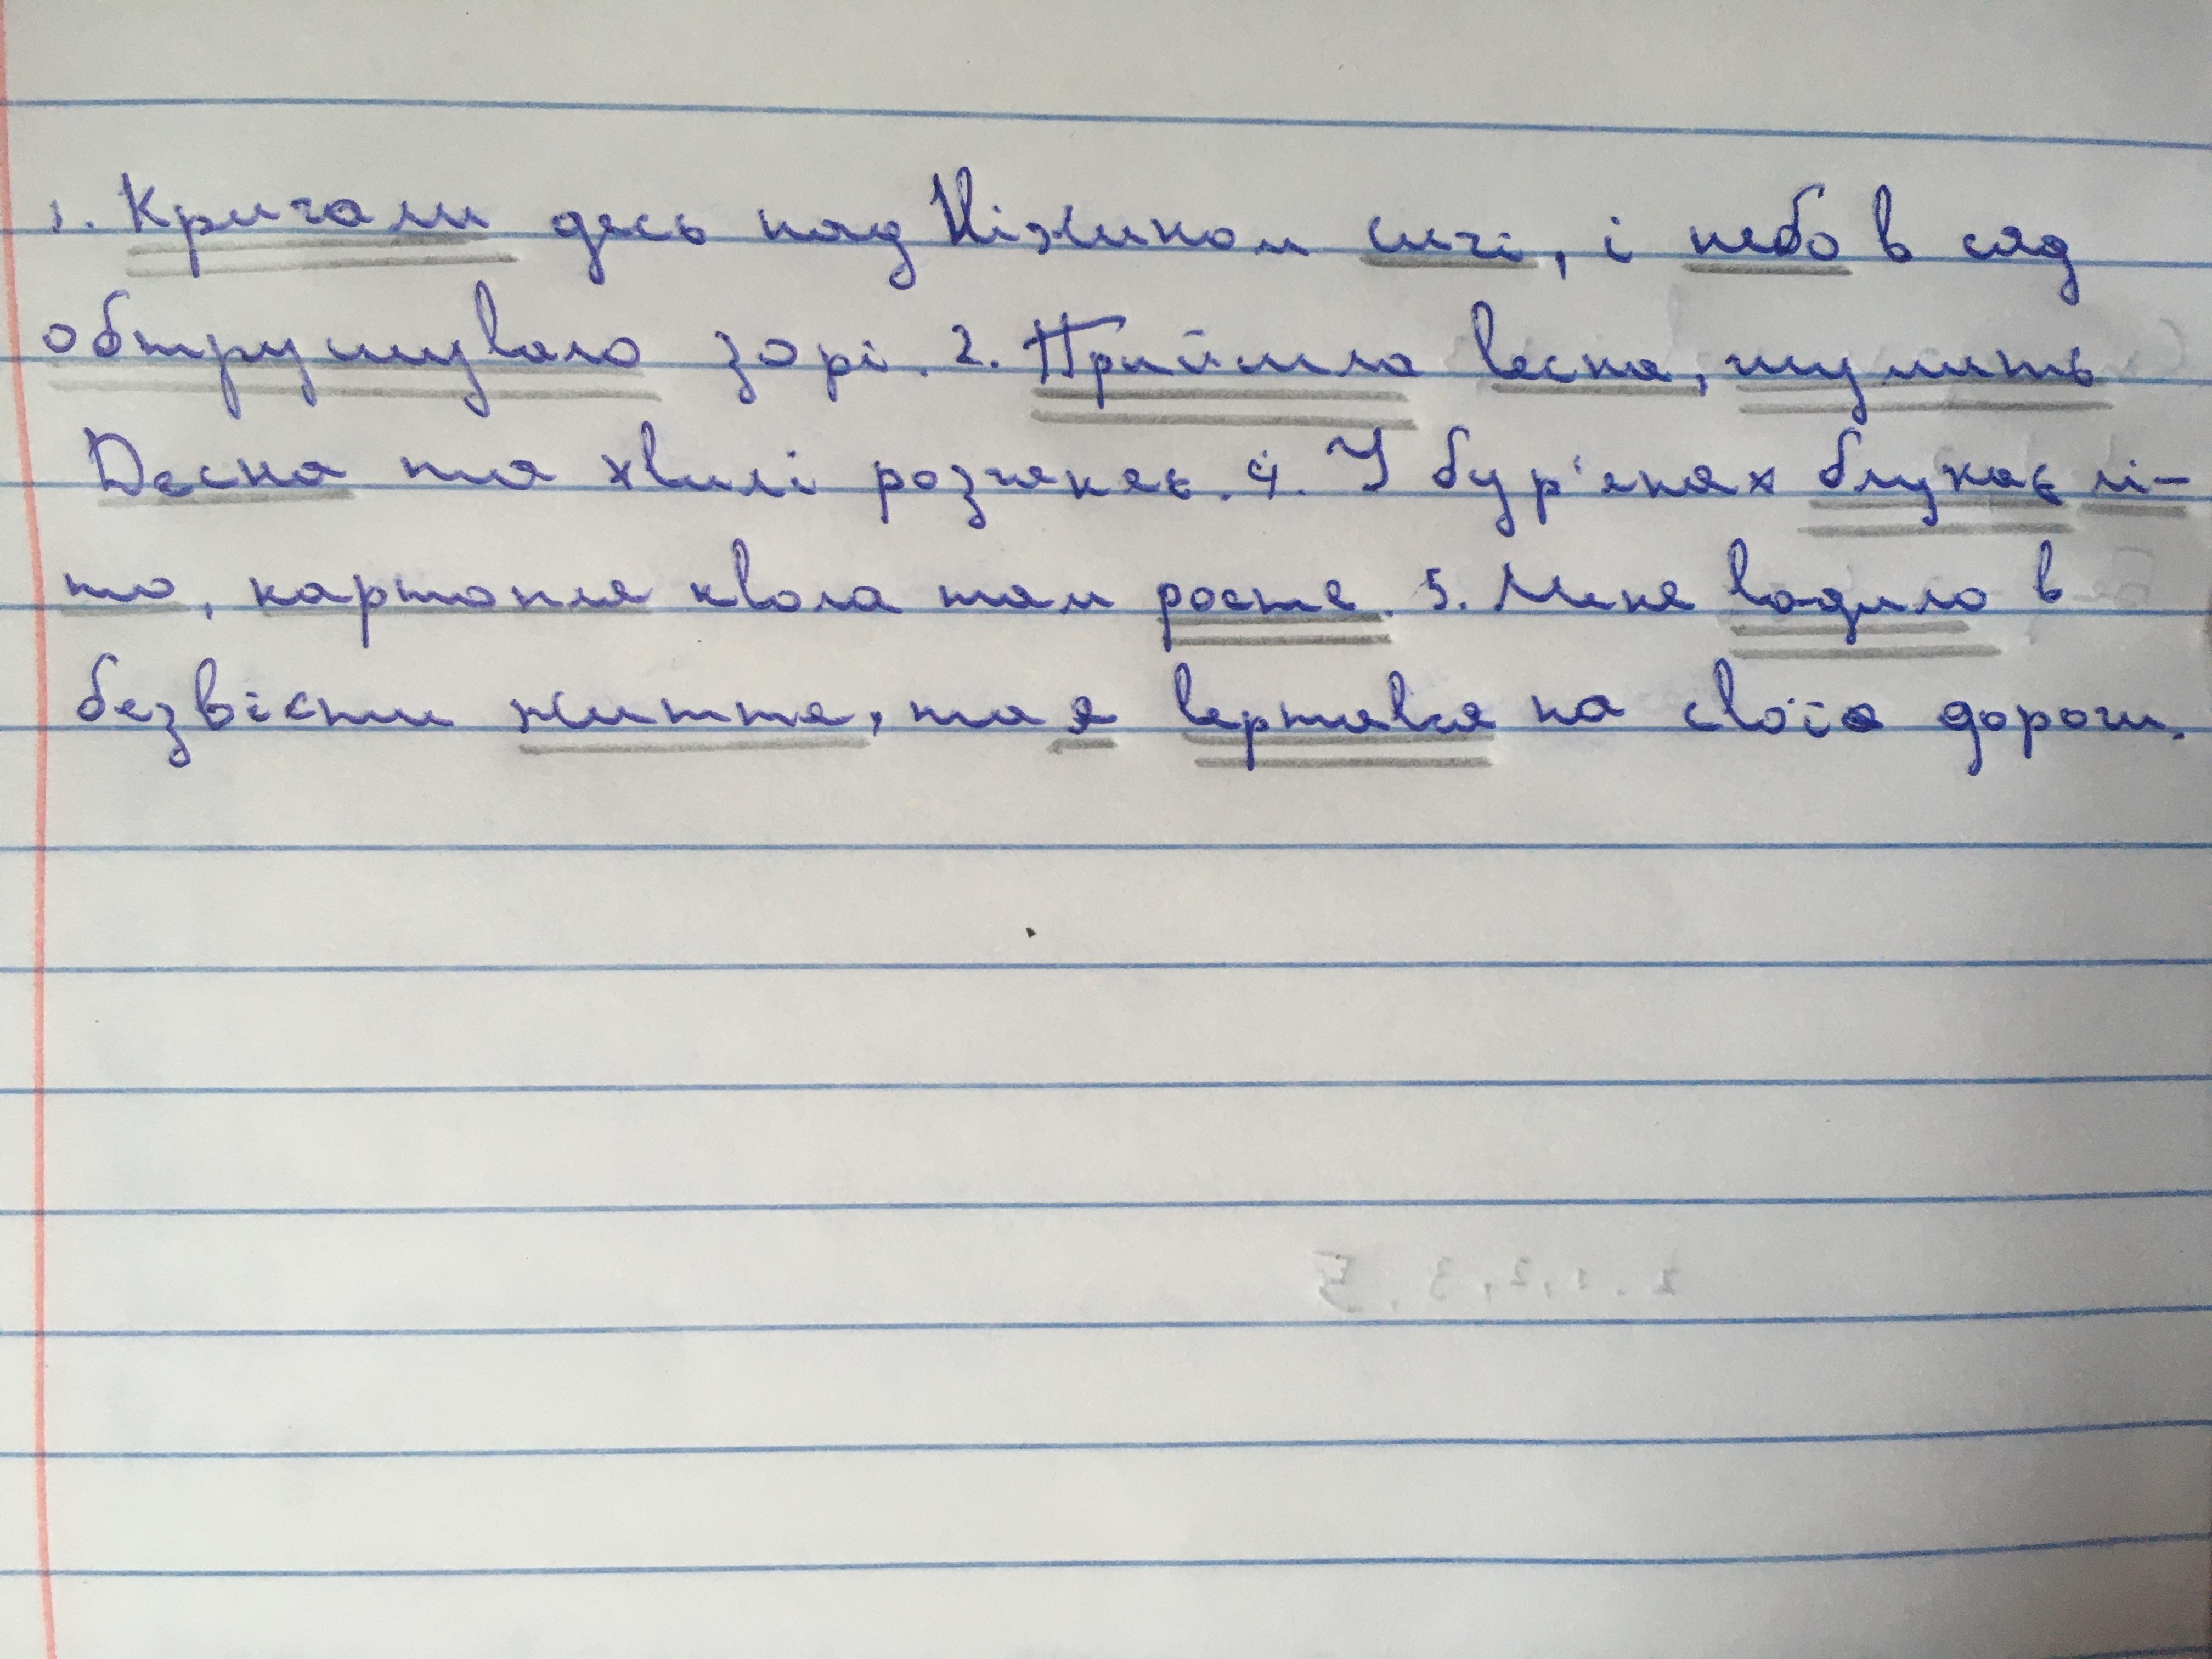 1. Кричали десь над Ніжином сичі, і небо в сяд
обтрушувало зорі. 2. Прийшла весна, шумить
Десна та хвилі розганяє. 4. У бур'янах блукає лі-
то, картопля квола там росте. 5. Мене водило в
безвісти життя, та я вертався на свої дороги.